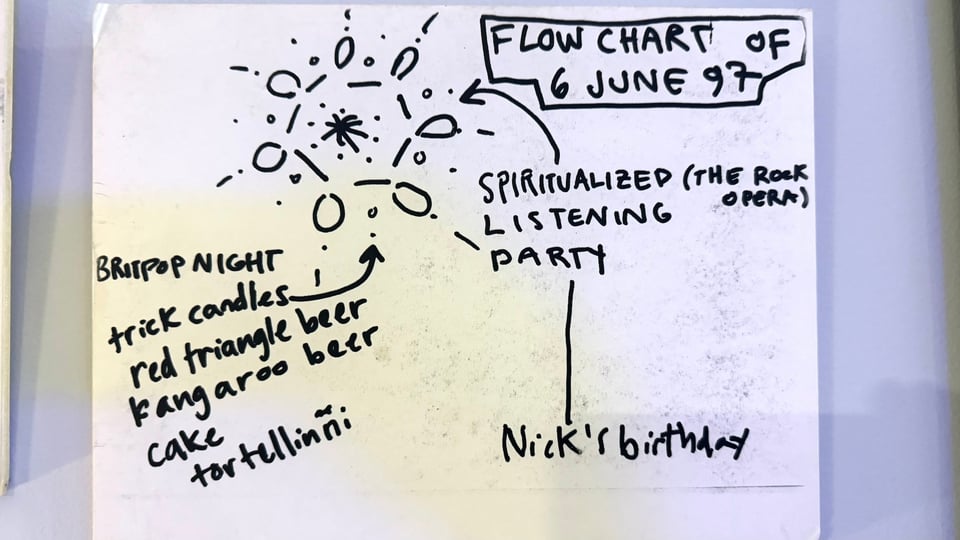 FLOW CHART OF
6 JUNE 97
SPIRITUALIZED (THE ROCK
OPERA)
LISTENING
PARTY
BRITPOP NIGHT
trick candles
red triangle beer
kangaroo beer
cake
tortelliñi
Nick's birthday